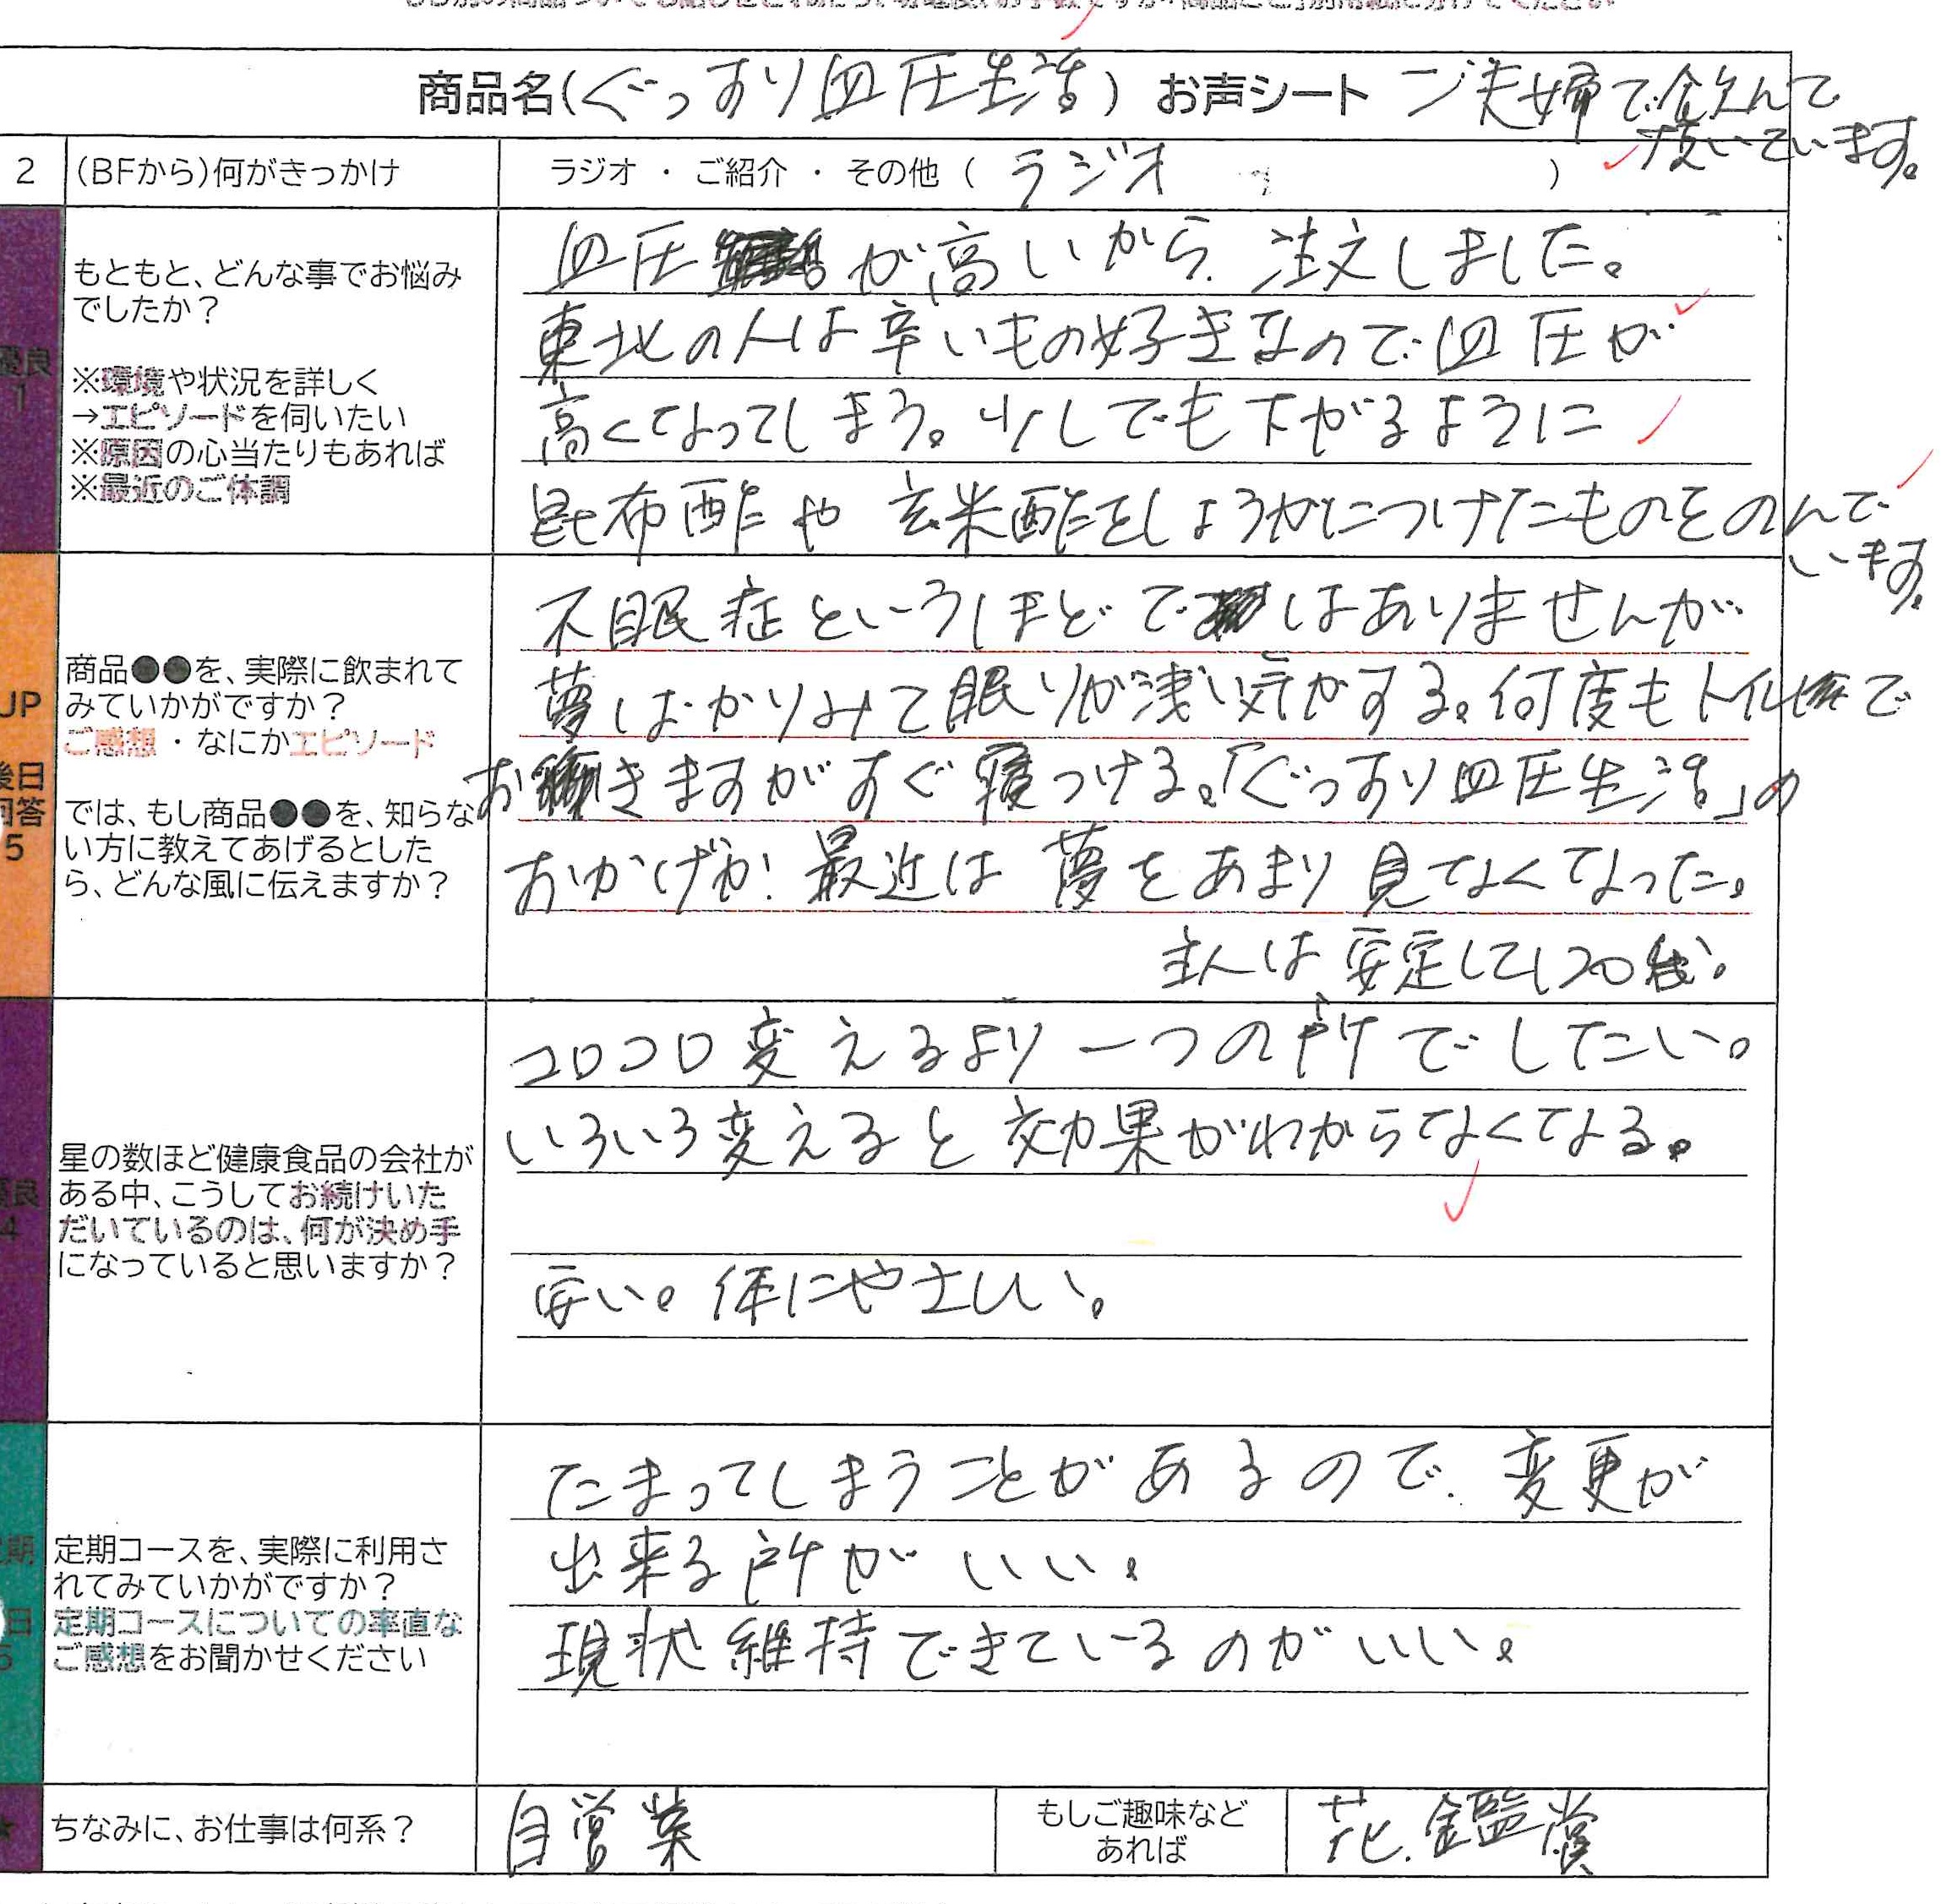 商品名(ぐっすり血圧生活) お声シート ご夫婦で飲んで
頂いています。
2 (BFから)何がきっかけ ラジオ ・ ご紹介 ・ その他 ( ラジオ )
優良
1
もともと、どんな事でお悩み
でしたか?
※環境や状況を詳しく
→エピソードを伺いたい
※原因の心当たりもあれば
※最近のご体調
血圧が高いから、注文しました。
東北の人は辛いもの好きなので血圧が
高くなってしまう。少しでも下がるように
昆布酢や玄米酢をしょうがにつけたものをのんで
います。
UP
後日
回答
5
商品●●を、実際に飲まれて
みていかがですか?
ご感想 ・ なにかエピソード
では、もし商品●●を、知らな
い方に教えてあげるとした
ら、どんな風に伝えますか?
不眠症というほどではありませんが
夢ばかりみて眠りが浅い気がする。何度もトイレで
おきますがすぐ寝つける。「ぐっすり血圧生活」の
おかげか!最近は夢をあまり見なくなった。
主人は安定して120台。
優良
4
星の数ほど健康食品の会社が
ある中、こうしてお続けいた
だいているのは、何が決め手
になっていると思いますか?
コロコロ変えるより一つの所でしたい。
いろいろ変えると効果がわからなくなる。
安い。体にやさしい。
定期
日
5
定期コースを、実際に利用さ
れてみていかがですか?
定期コースについての率直な
ご感想をお聞かせください
たまってしまうことがあるので、変更が
出来る所がいい。
現状維持できているのがいい。
★
ちなみに、お仕事は何系?
自営業
もしご趣味など
あれば
花、鑑賞